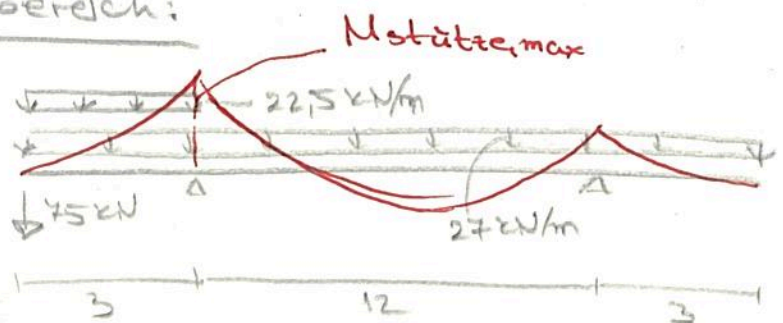 bereich:
Mstütze,max
22,5 kN/m
75 kN
27 kN/m
3 12 3